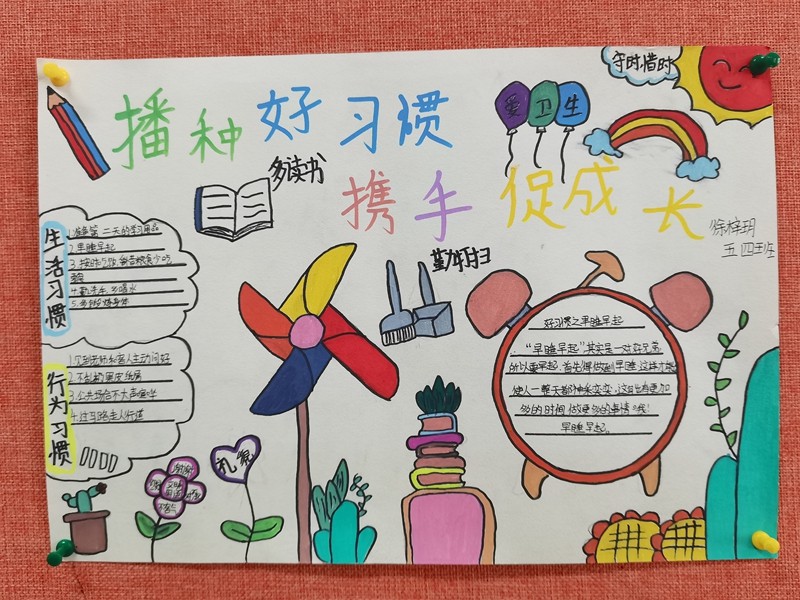 播种好习惯
携手促成长
守时,惜时
爱卫生
多读书
徐梓玥
五四班
勤打扫
生活习惯
1.准备第二天的学习用品
2.早睡早起
4.勤洗手,多喝水
5.多锻炼身体
行为习惯
1.见到老师和客人主动问好
3.公共场合不大声喧哗
4.过马路走人行道
礼貌
好习惯之早睡早起
“早睡早起”其实是一对好兄弟,
所以要早起,首先得做到早睡,这样才能
使人一整天都神采奕奕,这时出有更加
多的时间做更多的事情。我们
早睡早起。